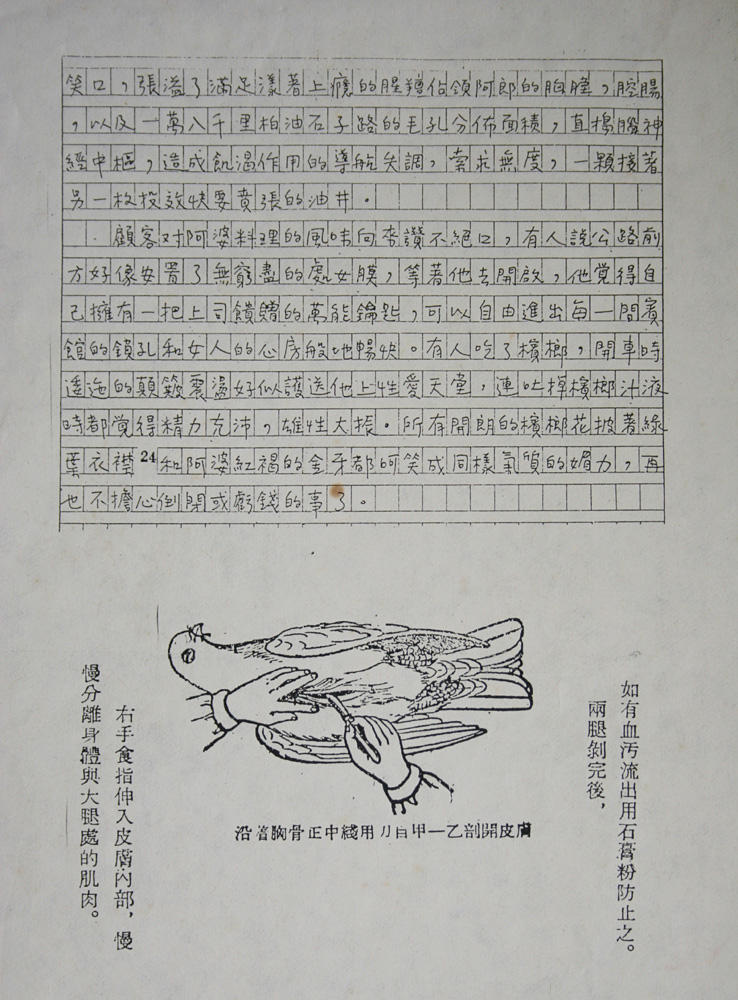 笑口，張溢了滿足漾著上癮的腥羶佔領阿郎的胸腫，腔腸
，以及一萬八千里柏油石子路的毛孔分佈面積，直搗腦神
經中樞，造成飢渴作用的導航失調，索求無度，一顆接著
另一枚投效快要賁張的油井。
顧客對阿婆料理的風味向來讚不絕口，有人說公路前
方好像安置了無窮盡的處女膜，等著他去開啟，他覺得自
己擁有一把上司饋贈的萬能鑰匙，可以自由進出每一間賓
館的鎖孔和女人的心房般地暢快。有人吃了檳榔，開車時
逶迤的顛簸震盪好似護送他上性愛天堂，連吐掉檳榔汁液
時都覺得精力充沛，雄性大振。所有開朗的檳榔花披著綠
葉衣襟24和阿婆紅褐的金牙都呵笑成同樣氣質的媚力，再
也不擔心倒閉或虧錢的事了。
如有血污流出用石膏粉防止之。
兩腿剝完後，
沿着胸骨正中綫用刀自甲—乙剖開皮膚
右手食指伸入皮膚內部，慢
慢分離身體與大腿處的肌肉。